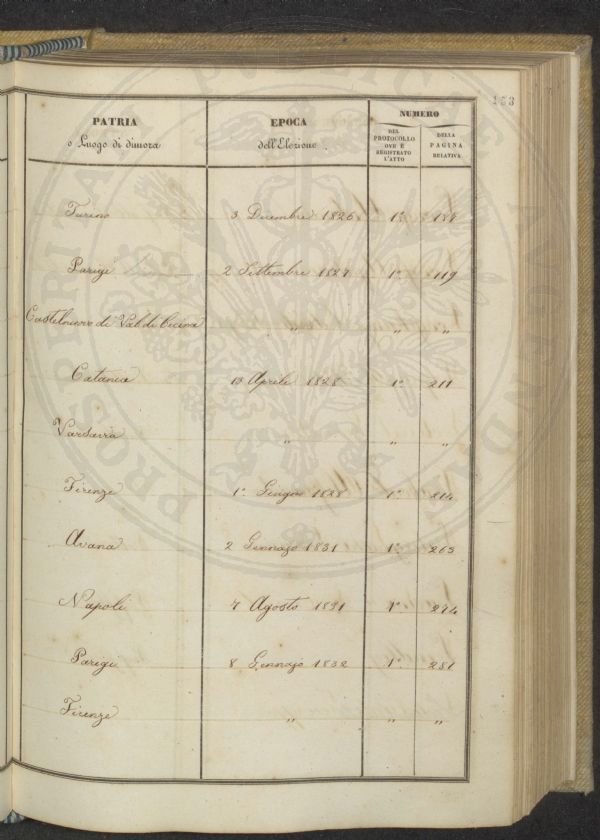 153
PATRIA
o Luogo di dimora
EPOCA
dell'Elezione
NUMERO
DEL
PROTOCOLLO
OVE È
REGISTRATO
L'ATTO
DELLA
PAGINA
RELATIVA
Torino 3 Dicembre 1826 1° 184
Parigi 2 Settembre 1827 1° 119
Castelnuovo di Val di Cecina " " "
Catania 13 Aprile 1828 1° 211
Varsavia " " "
Firenze 1° Giugno 1828 1° 214
Avana 2 Gennajo 1831 1° 263
Napoli 7 Agosto 1831 1° 274
Parigi 8 Gennajo 1832 1° 281
Firenze " " "